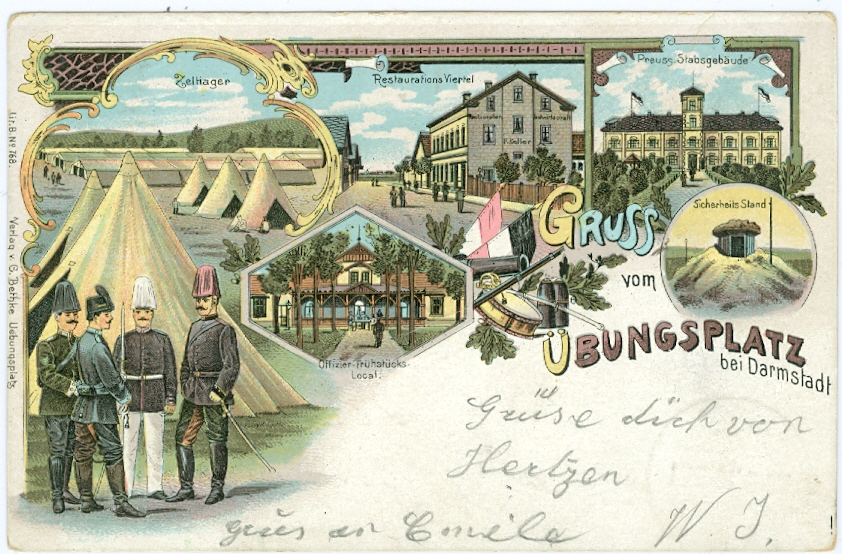 Zeltlager
Restaurations Viertel
Preuss. Stabsgebäude
Restauration
Gastwirtschaft
Sicherheits Stand
GRUSS
vom
ÜBUNGSPLATZ
bei Darmstadt
Offizier-Frühstücks-
Local.
Lit. B. No 768.
Verlag v. C. Bethke Uebungsplatz.
Grüse dich von
Hertzen
W J.
grüs an Emiele